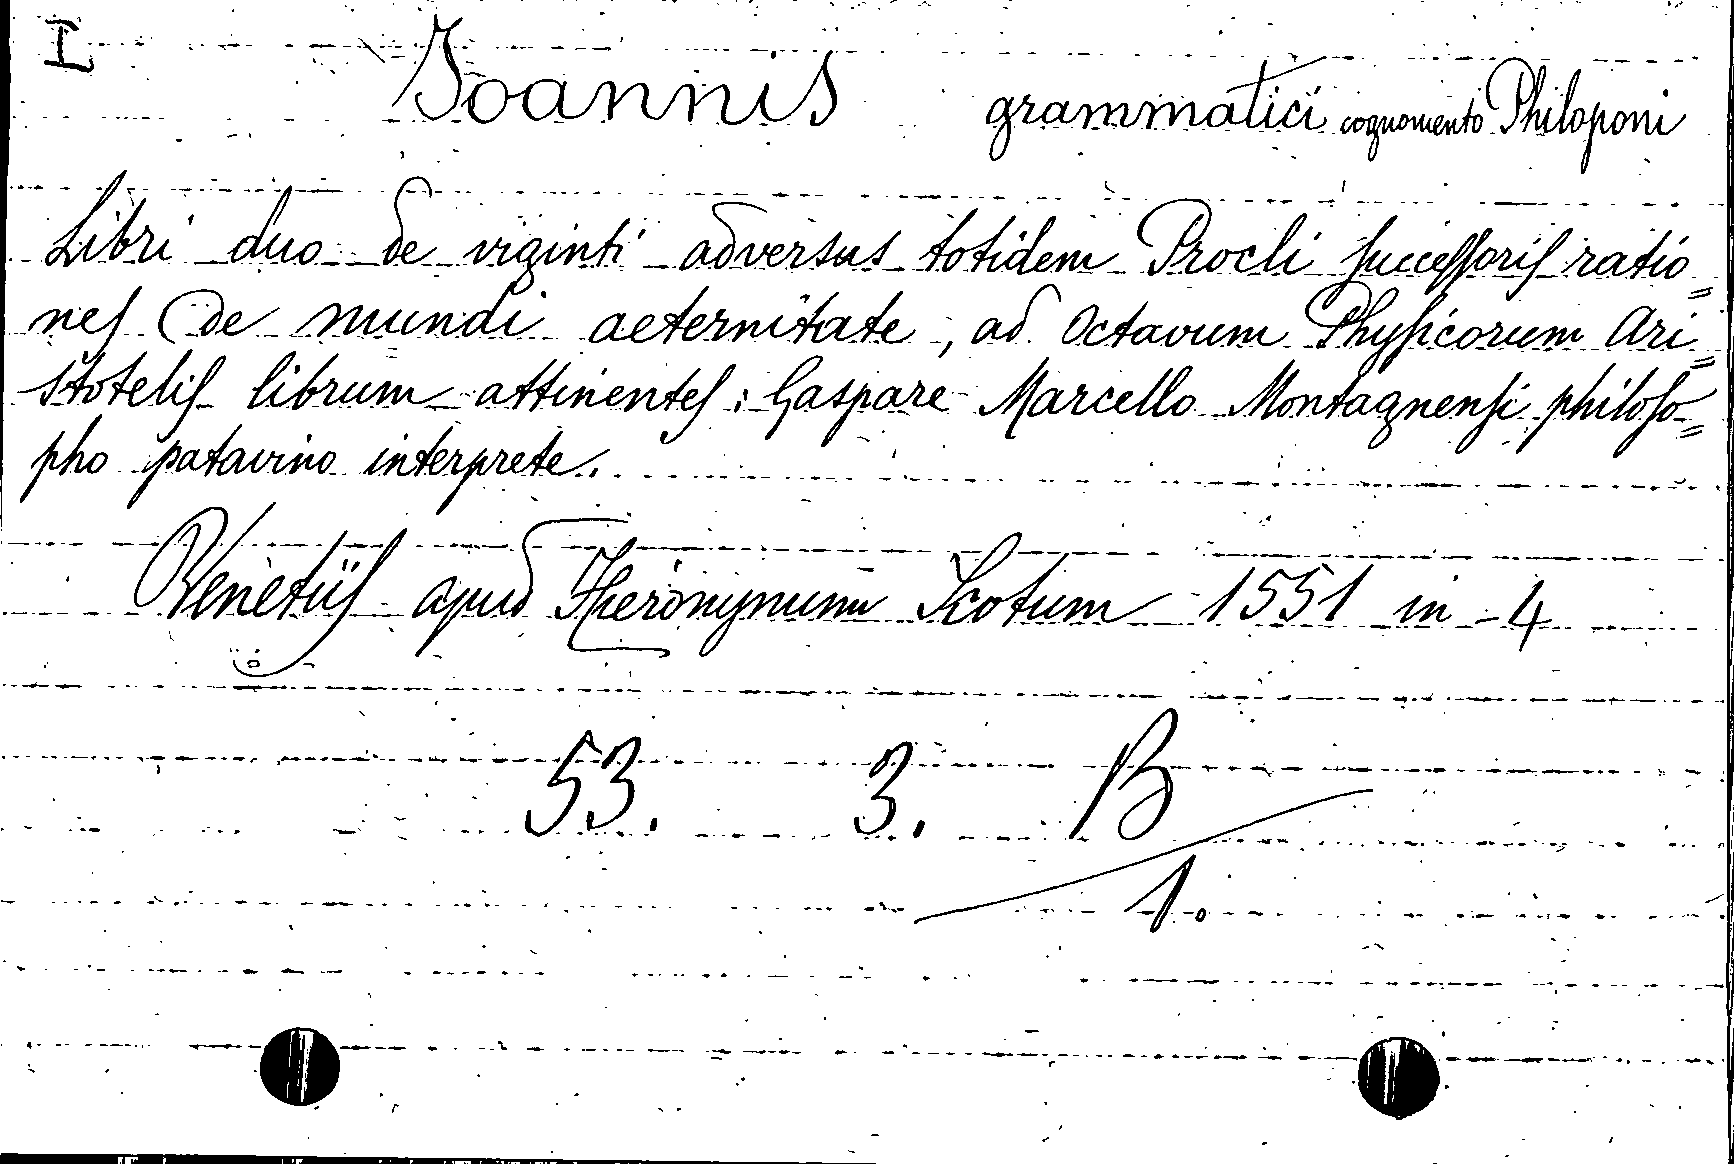 I
Joannis grammatici cognomento Philoponi
Libri duo de viginti adversus totidem Procli succeſſoriſ ratio=
neſ de mundi aeternitate, ad Octavum Phyſicorum Ari=
stoteliſ librum attinenteſ: Gaspare Marcello Montagnenſi philoſo=
pho patavino interprete.
Venetiiſ apud Hieronymum Scotum 1551 in 4
53. 3. B
1.